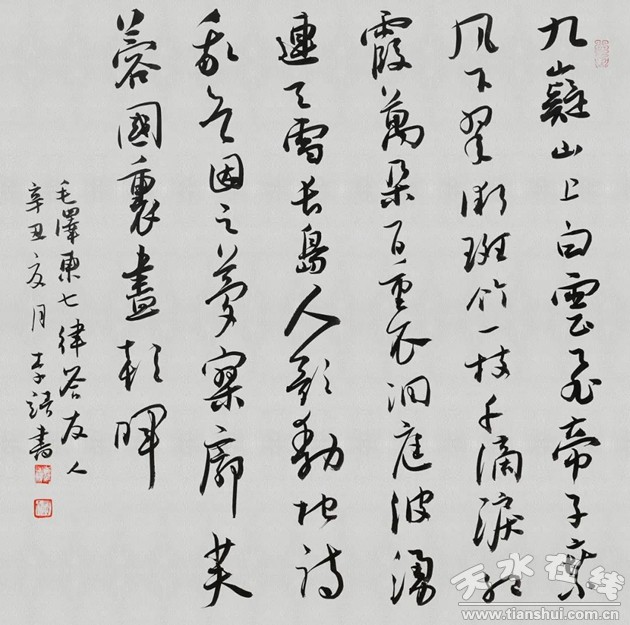 九嶷山上白雲飛帝子乘
風下翠微斑竹一枝千滴淚紅
霞萬朵百重衣洞庭波湧
連天雪長島人歌動地詩
我欲因之夢寥廓芙
蓉國裏盡朝暉
毛澤東七律答友人
辛丑夏月李書
天水在线
www.tianshui.com.cn